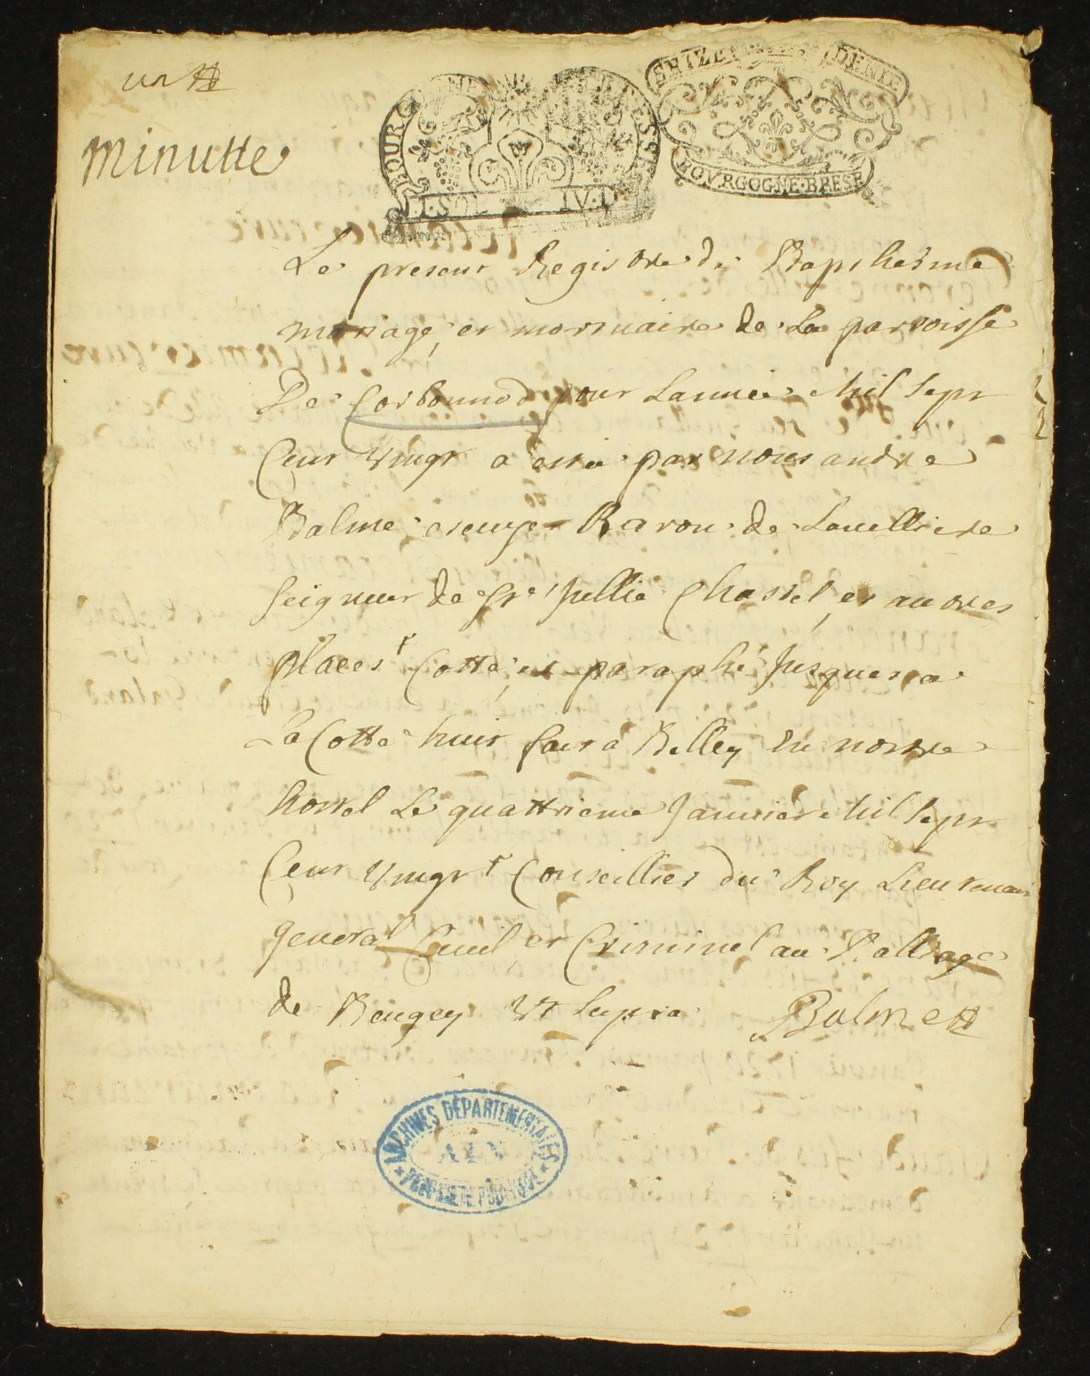 un
minutte
BOURGOGNE BRESSE
DI·SOL IV·D
SEIZE DENIE
BOVRGOGNE·BRESE
Le present Registre de Bapthesme
mariage, et mortuaire de La parroisse
De Corbonnod pour Lannée Mil sept
Cent vingt a esté par nous andre
Balme escuyer Baron de
seigneur de St Jullie Chastel, et autres
places Cotté, et paraphé Jusques a
La Cotte huit fait a Belley en nostre
hostel Le quattrieme Janvier Mil sept
Cent vingt Conseillier du Roy Lieutenant
general Civil et Criminel au Balliage
de Beugey Vt supra Balme
ARCHIVES DÉPARTEMENTALES
AIN
PROPRIÉTÉ PUBLIQUE